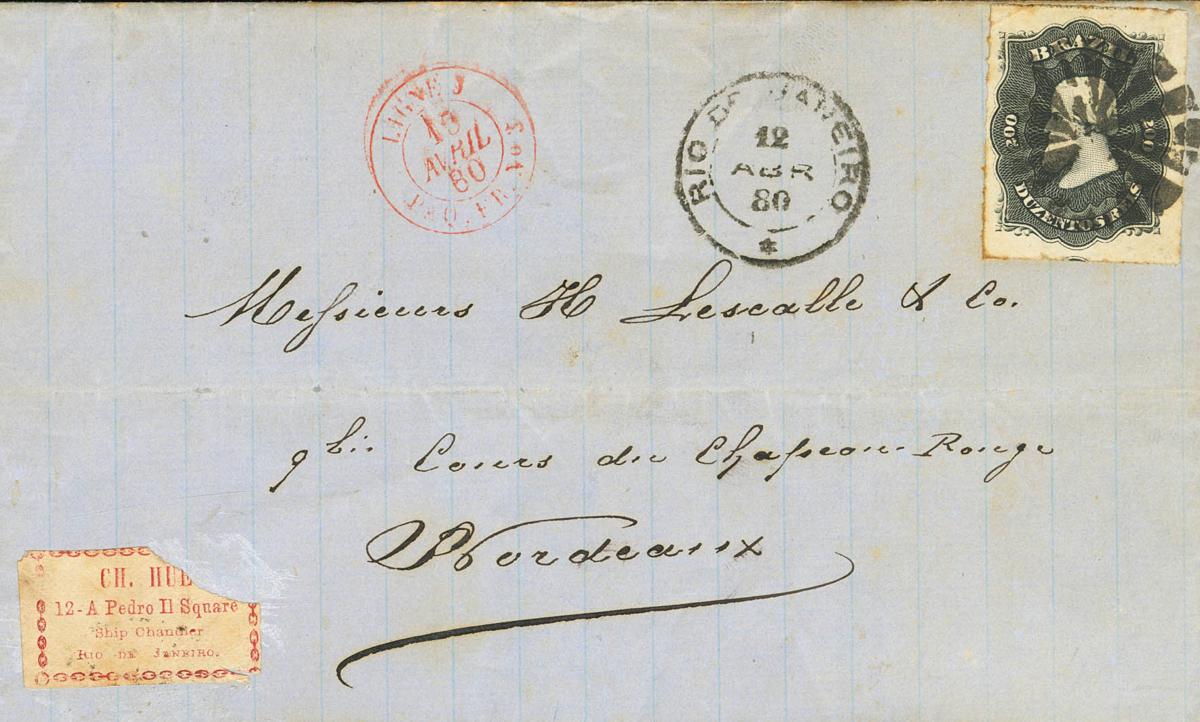 BRAZIL
200 200
DUZENTOS REIS
LIGNE J
13
AVRIL
80
PAQ. FR. Nº 3
RIO DE JANEIRO
12
ABR
80
Messieurs H Lescalle & Co.
9 bis Cours du Chapeau Rouge
Bordeaux
CH. HUE
12-A Pedro II Square
Ship Chandler
RIO DE JANEIRO.